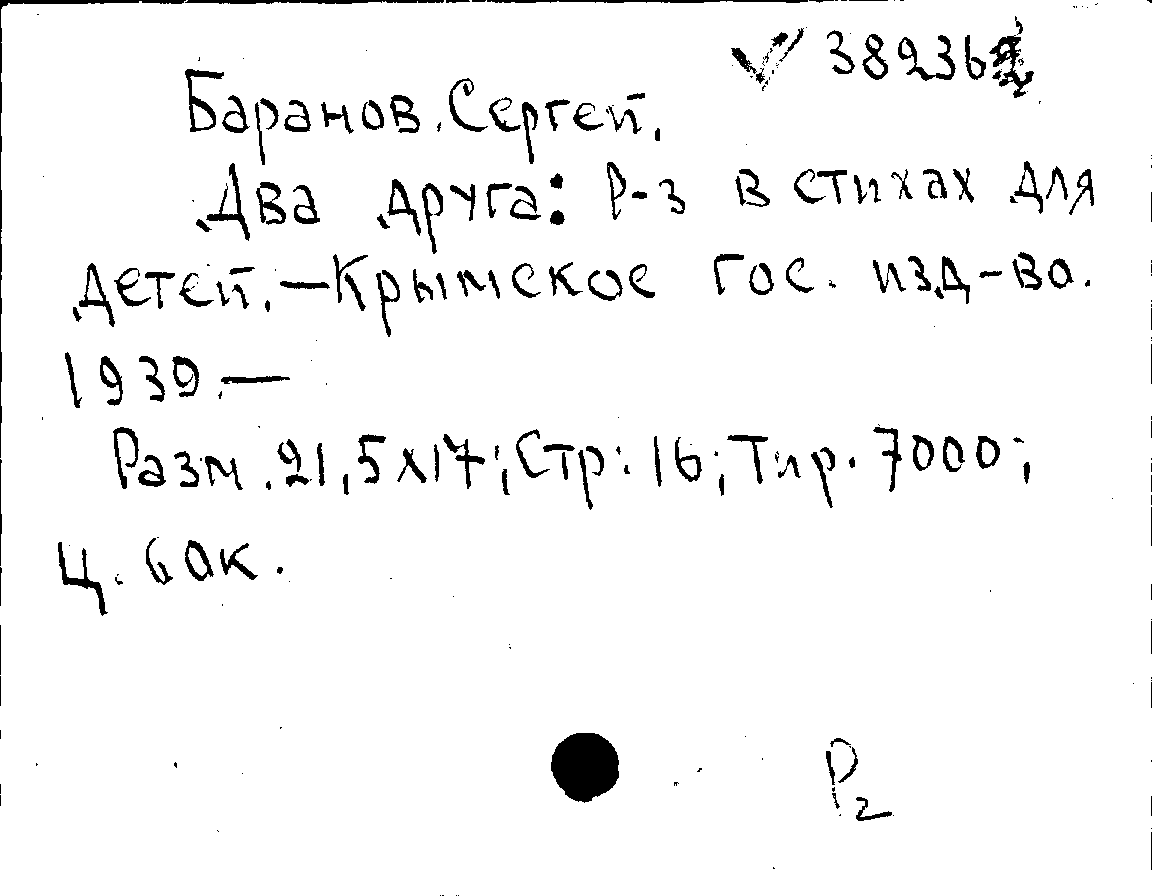 ✓ 38236
Баранов. Сергей.
Два друга: Р-з в стихах для
детей. — Крымское гос. изд-во.
1939. —
Разм. 21,5х17; Стр: 16; Тир. 7000;
Ц. 60к.
Р2